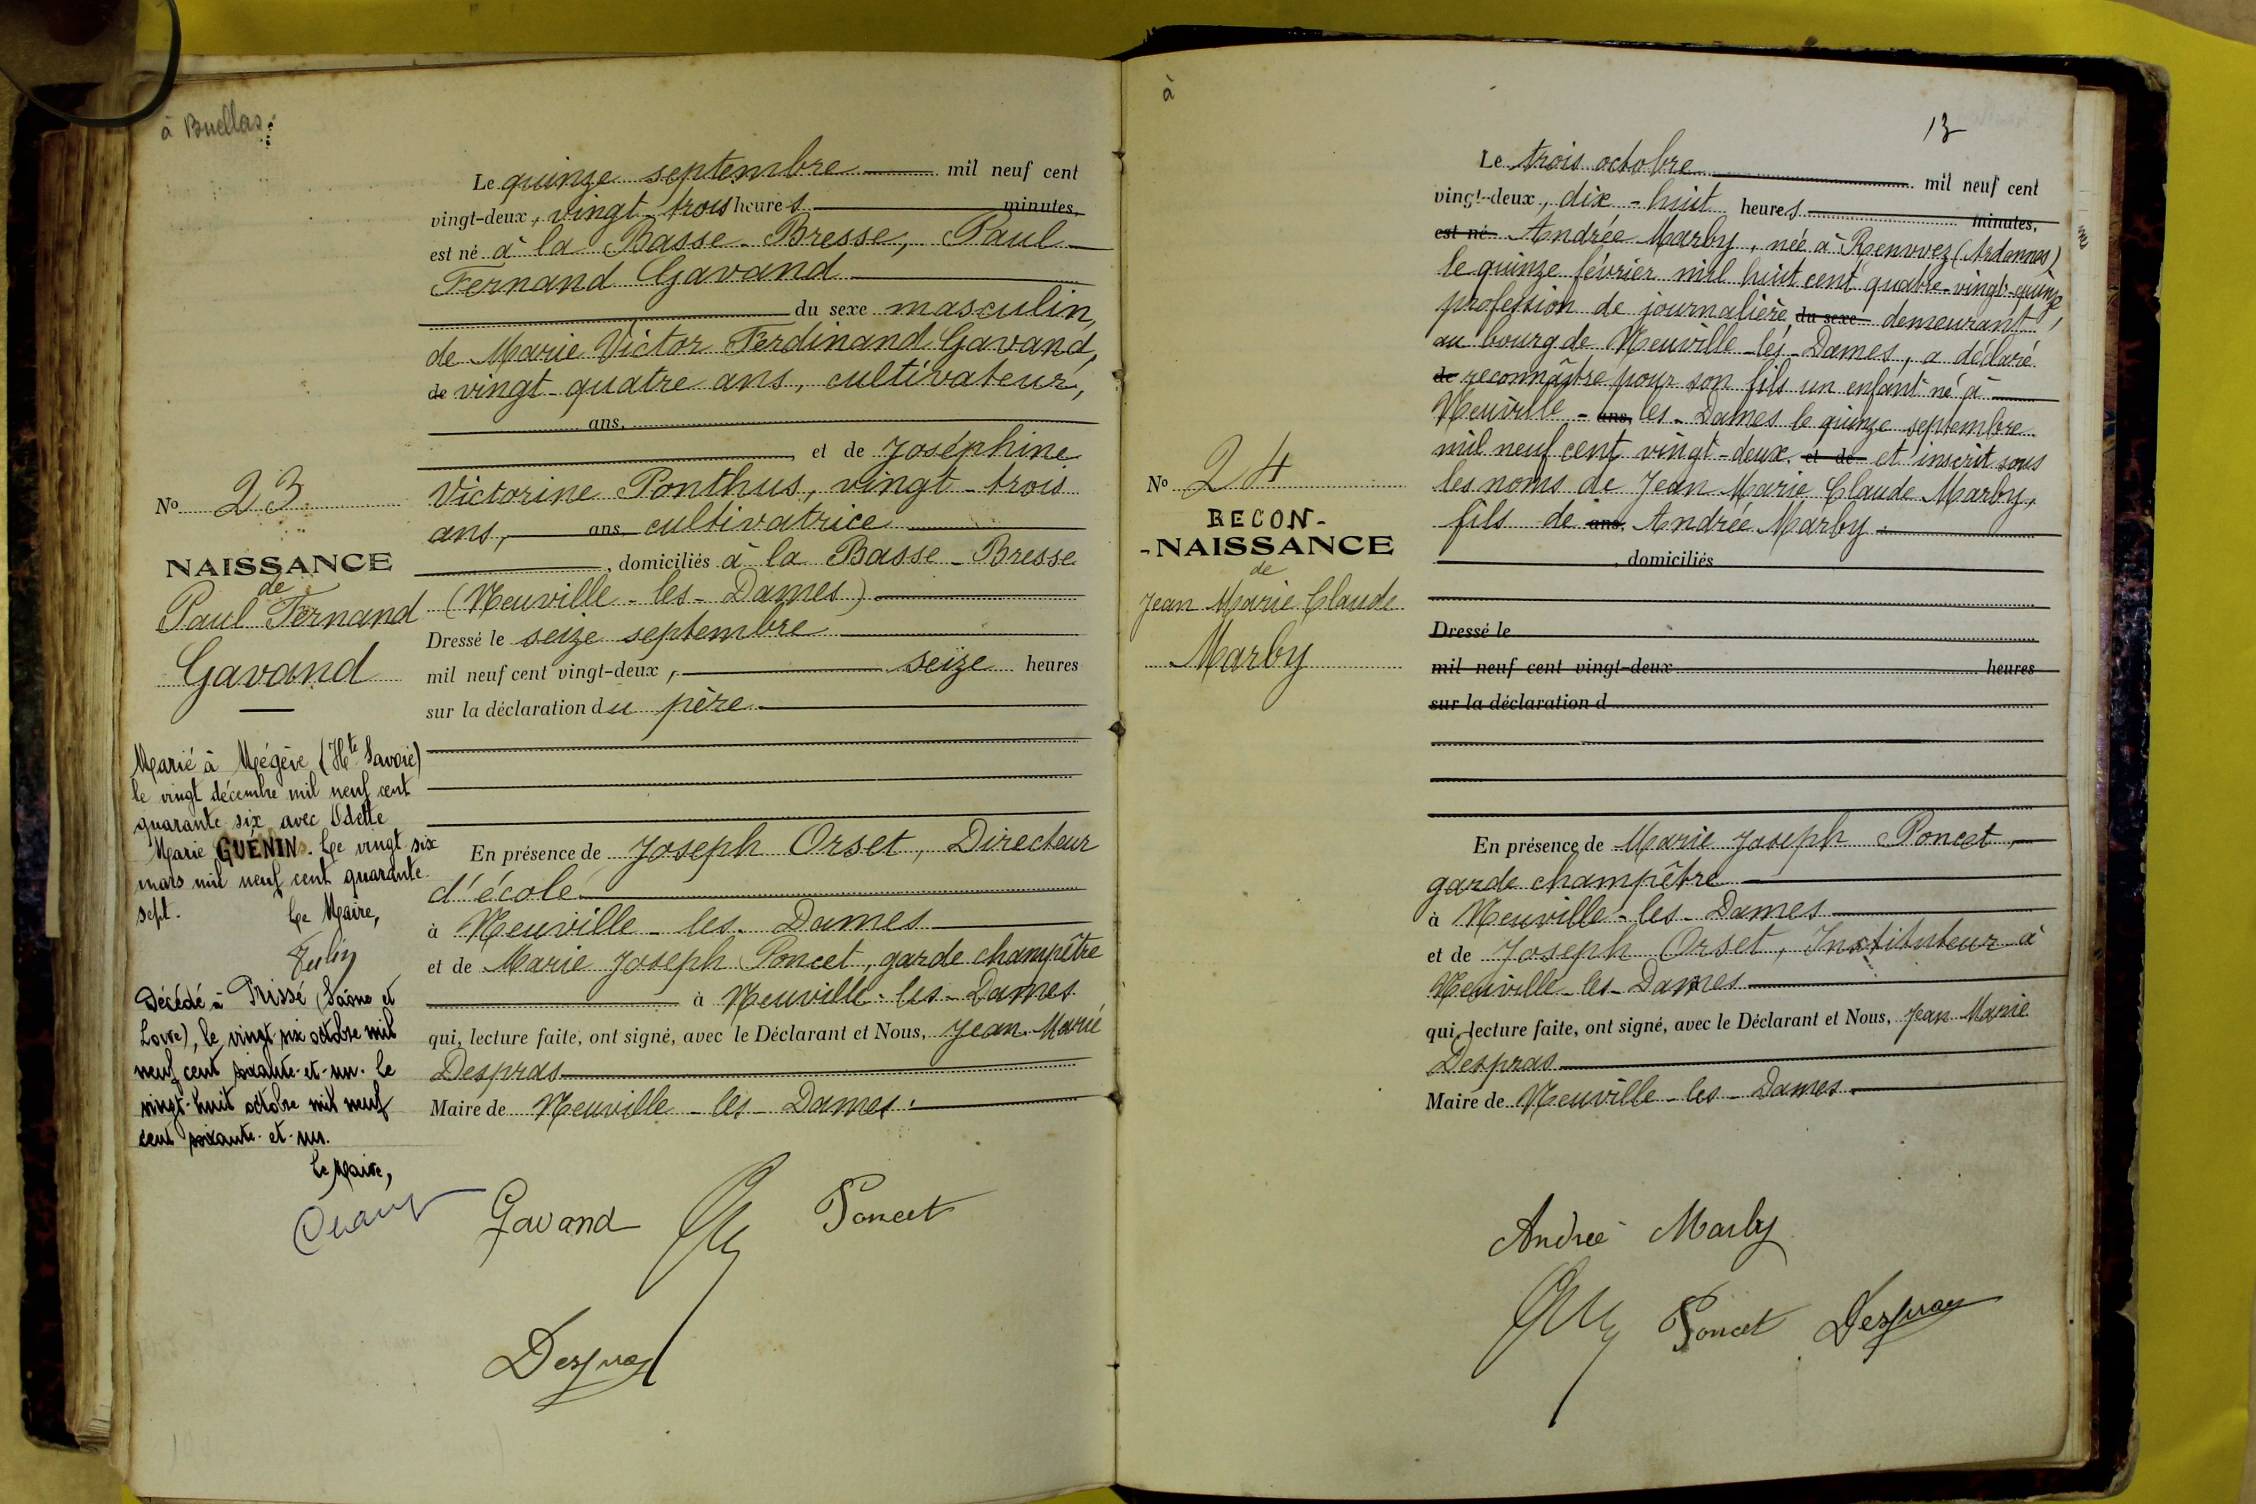 à Buellas
Le quinze septembre mil neuf cent
vingt-deux, vingt-trois heures minutes,
est né à la Basse-Bresse, Paul
Fernand Gavand
du sexe masculin,
de Marie Victor Ferdinand Gavand,
de vingt-quatre ans, cultivateur,
ans,
, et de Joséphine
Victorine Ponthus, vingt-trois
ans, ans cultivatrice
, domiciliés à la Basse-Bresse
(Neuville-les-Dames)
Dressé le seize septembre
mil neuf cent vingt-deux, seize heures
sur la déclaration du père
En présence de Joseph Orset, Directeur
d'école
à Neuville-les-Dames
et de Marie Joseph Poncet, garde champêtre
à Neuville-les-Dames
qui, lecture faite, ont signé, avec le Déclarant et Nous, Jean Marie
Despras
Maire de Neuville-les-Dames.
Gavand Poncet
Despras
No 23
NAISSANCE
de
Paul Fernand
Gavand
Marié à Mégève (Hte Savoie)
le vingt décembre mil neuf cent
quarante six avec Odette
Marie GUÉNIN. Le vingt six
mars mil neuf cent quarante
sept.
Le Maire,
Décédé à Prissé (Saône et
Loire), le vingt six octobre mil
neuf cent soixante-et-un. Le
vingt-huit octobre mil neuf
cent soixante-et-un.
Le Maire,
à
13
Le trois octobre mil neuf cent
vingt-deux, dix-huit heures minutes,
est né Andrée Marby, née à Renwez (Ardennes)
le quinze février mil huit cent quatre-vingt-quinze,
profession de journalière du sexe demeurant
au bourg de Neuville-les-Dames, a déclaré
de reconnaître pour son fils un enfant né à
Neuville-ans, les-Dames le quinze septembre
mil neuf cent vingt-deux. et de et inscrit sous
les noms de Jean Marie Claude Marby,
fils de ans, Andrée Marby.
, domiciliés
Dressé le
mil neuf cent vingt-deux heures
sur la déclaration d
En présence de Marie Joseph Poncet,
garde champêtre
à Neuville-les-Dames
et de Joseph Orset, Instituteur à
Neuville-les-Dames
qui, lecture faite, ont signé, avec le Déclarant et Nous, Jean Marie
Despras
Maire de Neuville-les-Dames
Andrée Marby
Poncet Despras
No 24
RECON-
-NAISSANCE
de
Jean Marie Claude
Marby